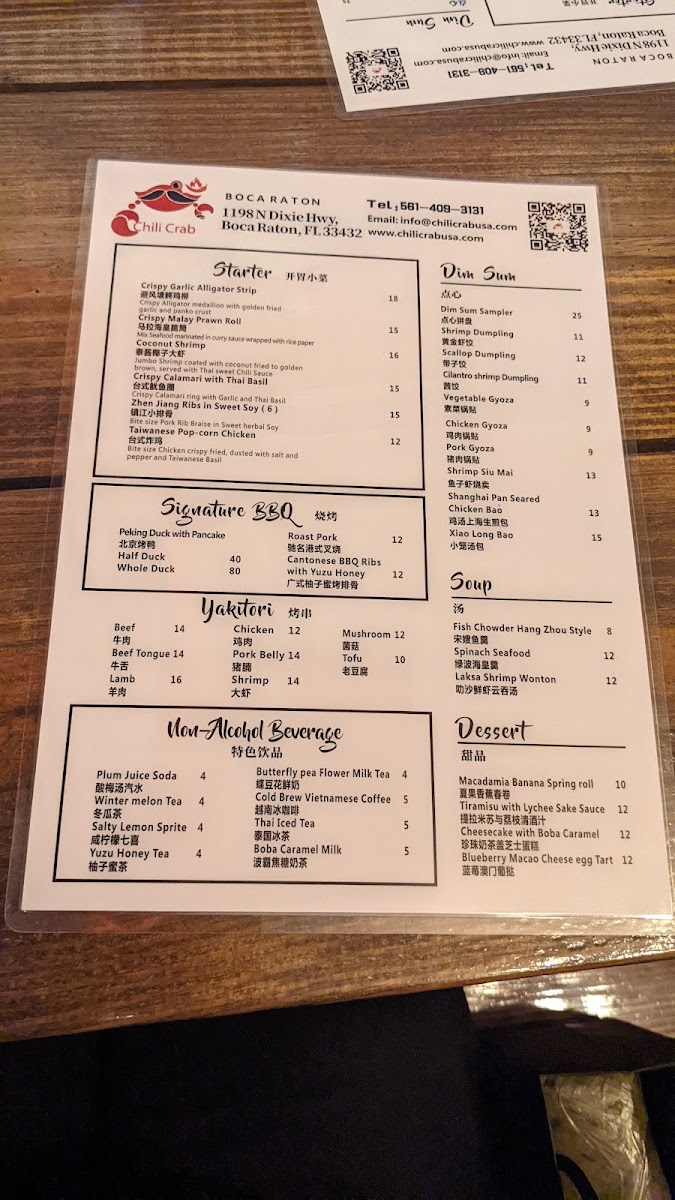 Dim Sum
点心
Starter 开胃小菜
BOCA RATON
1198 N Dixie Hwy,
Boca Raton, FL 33432
Tel,561-409-3131
Email:info@chilicrabusa.com
www.chilicrabusa.com
Chili Crab
BOCA RATON
1198 N Dixie Hwy,
Boca Raton, FL 33432
Tel:561-409-3131
Email: info@chilicrabusa.com
www.chilicrabusa.com
Starter 开胃小菜
Crispy Garlic Alligator Strip
避风塘鳄鸡柳 18
Crispy Alligator medallion with golden fried
garlic and panko crust
Crispy Malay Prawn Roll
马拉海皇脆筒 15
Mix Seafood marinated in curry sauce wrapped with rice paper
Coconut Shrimp
泰酱椰子大虾 16
Jumbo Shrimp coated with coconut fried to golden
brown, served with Thai sweet Chili Sauce
Crispy Calamari with Thai Basil
台式鱿鱼圈 15
Crispy Calamari ring with Garlic and Thai Basil
Zhen Jiang Ribs in Sweet Soy ( 6 )
镇江小排骨 15
Bite size Pork Rib Braise in Sweet herbal Soy
Taiwanese Pop-corn Chicken
台式炸鸡 12
Bite size Chicken crispy fried, dusted with salt and
pepper and Taiwanese Basil
Signature BBQ 烧烤
Peking Duck with Pancake
北京烤鸭
Half Duck 40
Whole Duck 80
Roast Pork 12
驰名港式叉烧
Cantonese BBQ Ribs
with Yuzu Honey 12
广式柚子蜜烤排骨
Yakitori 烤串
Beef 14
牛肉
Beef Tongue 14
牛舌
Lamb 16
羊肉
Chicken 12
鸡肉
Pork Belly 14
猪腩
Shrimp 14
大虾
Mushroom 12
菌菇
Tofu 10
老豆腐
Non-Alcohol Beverage
特色饮品
Plum Juice Soda 4
酸梅汤汽水
Winter melon Tea 4
冬瓜茶
Salty Lemon Sprite 4
咸柠檬七喜
Yuzu Honey Tea 4
柚子蜜茶
Butterfly pea Flower Milk Tea 4
蝶豆花鲜奶
Cold Brew Vietnamese Coffee 5
越南冰咖啡
Thai Iced Tea 5
泰国冰茶
Boba Caramel Milk 5
波霸焦糖奶茶
Dim Sum
点心
Dim Sum Sampler 25
点心拼盘
Shrimp Dumpling 11
黄金虾饺
Scallop Dumpling 12
带子饺
Cilantro shrimp Dumpling 11
茜饺
Vegetable Gyoza 9
素菜锅贴
Chicken Gyoza 9
鸡肉锅贴
Pork Gyoza 9
猪肉锅贴
Shrimp Siu Mai 13
鱼子虾烧卖
Shanghai Pan Seared
Chicken Bao 13
鸡汤上海生煎包
Xiao Long Bao 15
小笼汤包
Soup
汤
Fish Chowder Hang Zhou Style 8
宋嫂鱼羹
Spinach Seafood 12
绿波海皇羹
Laksa Shrimp Wonton 12
叻沙鲜虾云吞汤
Dessert
甜品
Macadamia Banana Spring roll 10
夏果香蕉春卷
Tiramisu with Lychee Sake Sauce 12
提拉米苏与荔枝清酒汁
Cheesecake with Boba Caramel 12
珍珠奶茶盖芝士蛋糕
Blueberry Macao Cheese egg Tart 12
蓝莓澳门葡挞